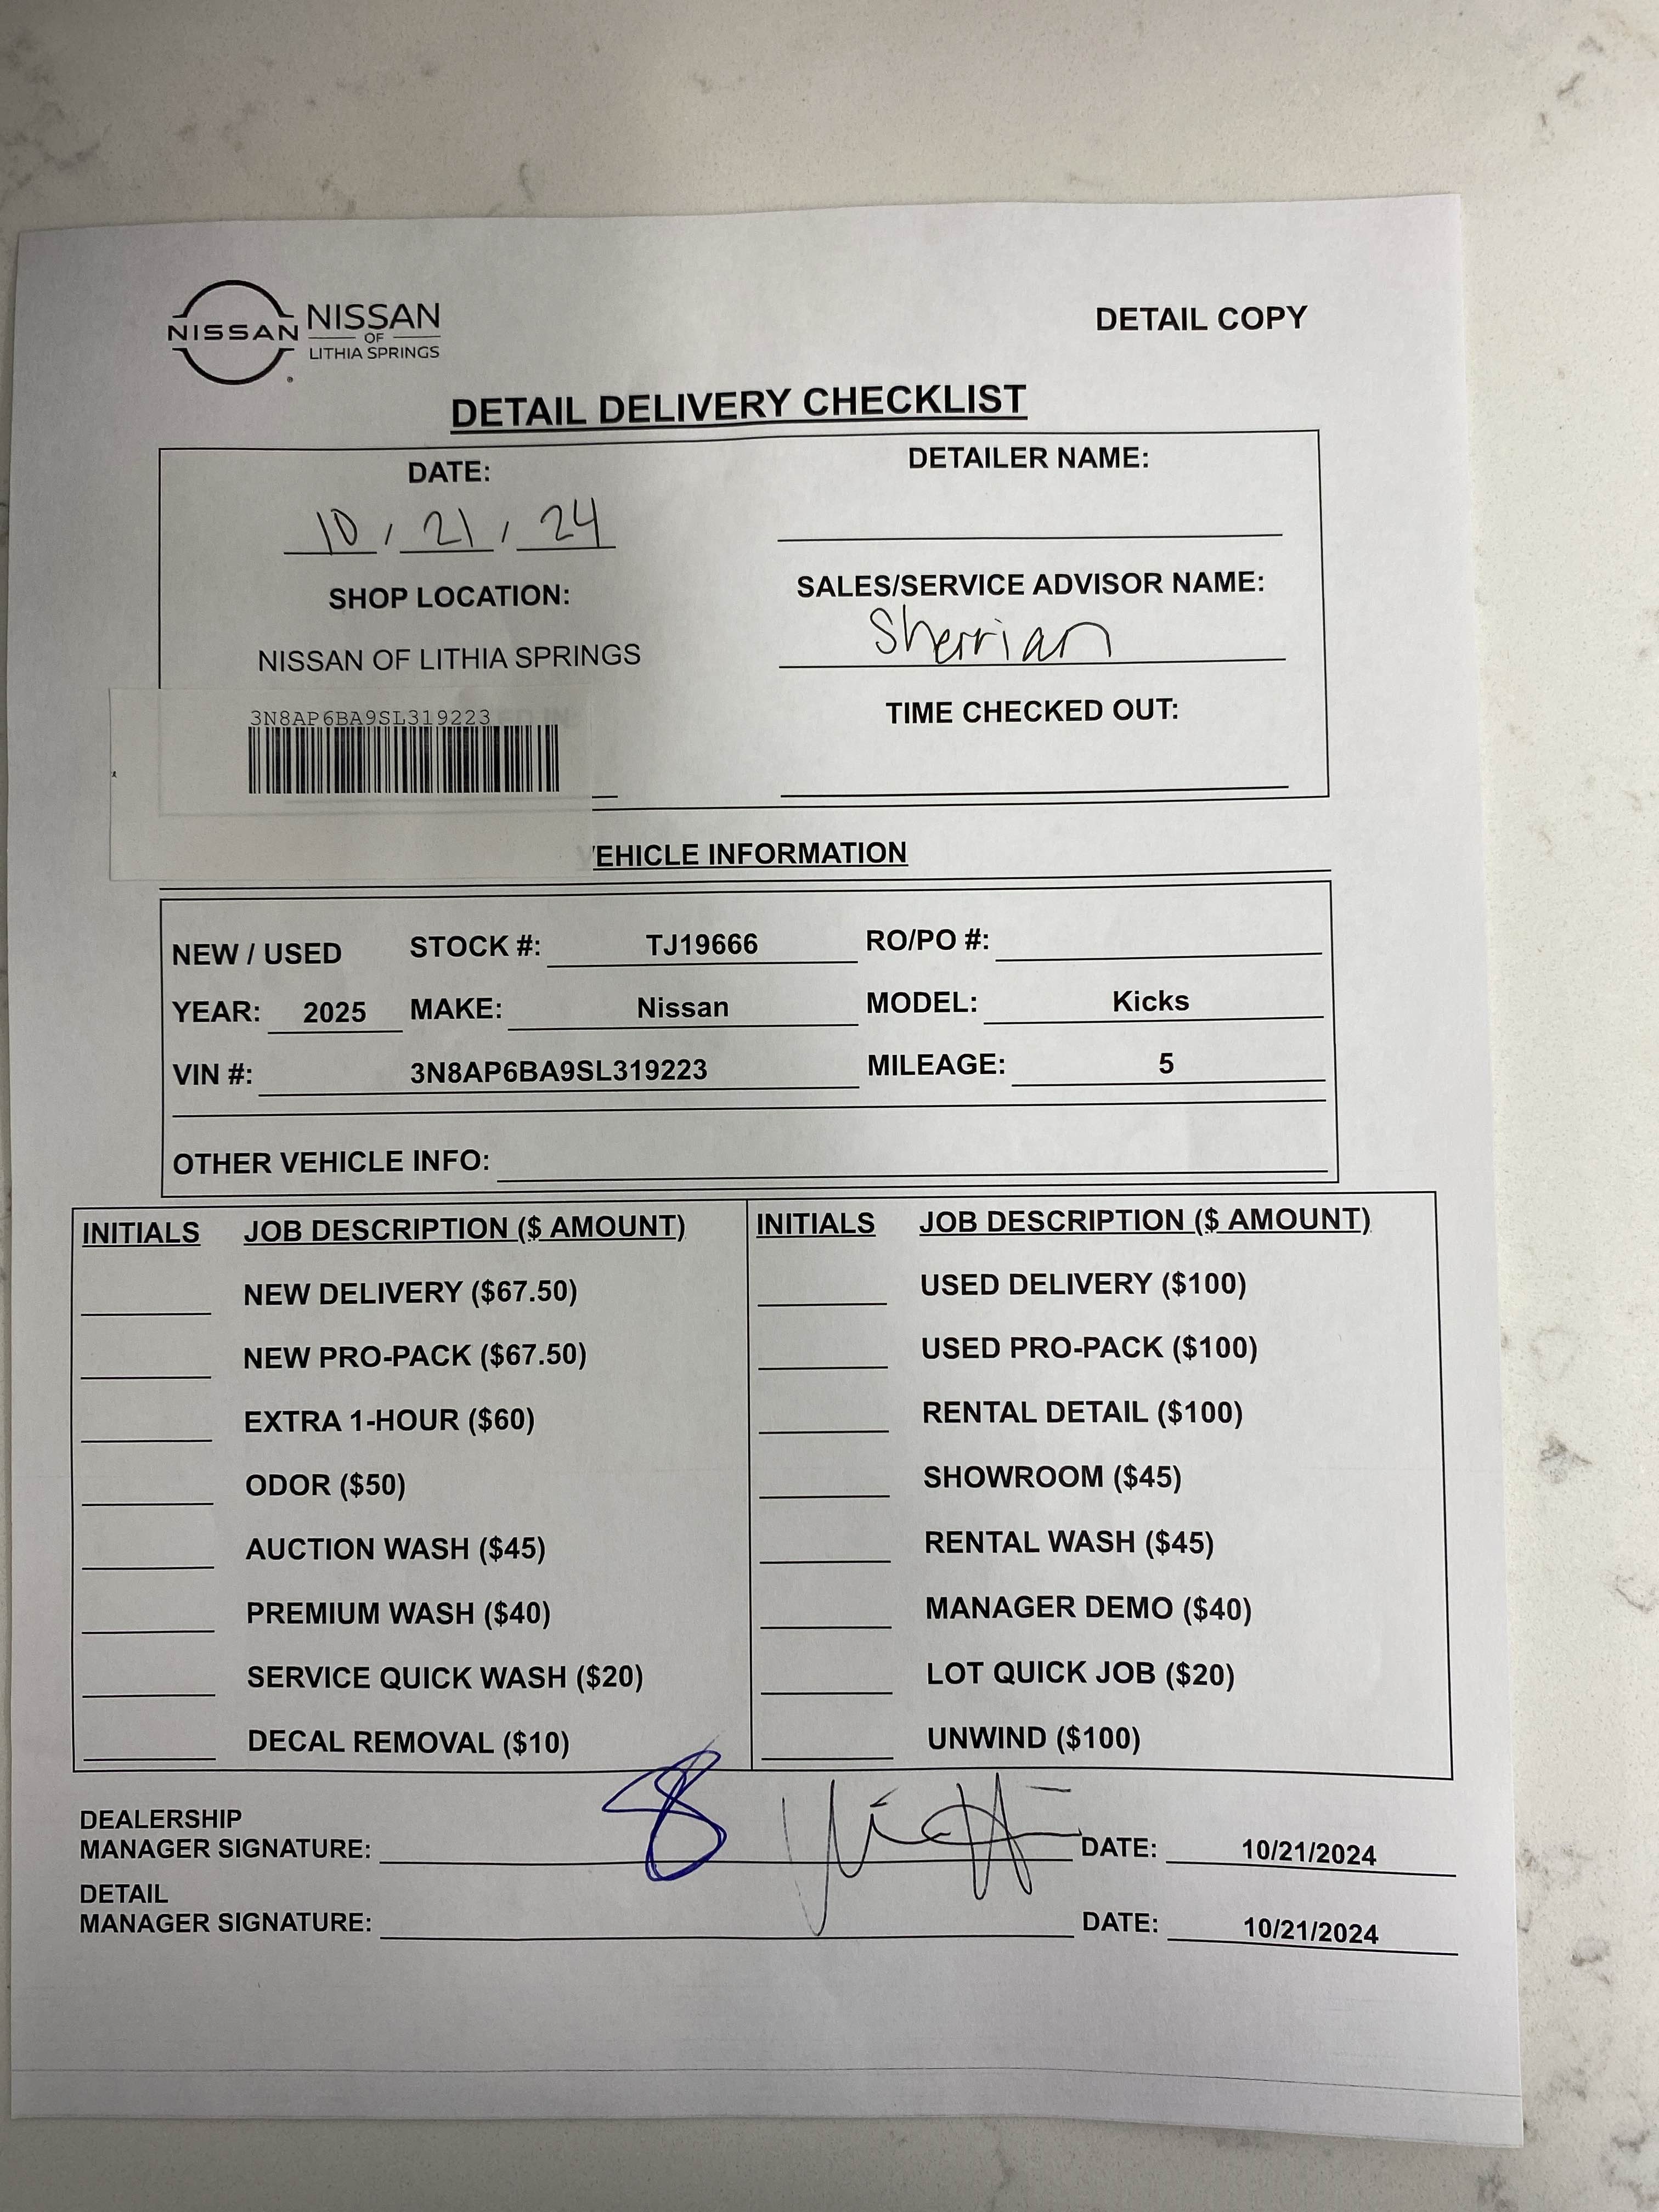 NISSAN
NISSAN
OF
LITHIA SPRINGS
DETAIL COPY
DETAIL DELIVERY CHECKLIST
DATE:
10 / 21 / 24
DETAILER NAME:
SHOP LOCATION:
NISSAN OF LITHIA SPRINGS
SALES/SERVICE ADVISOR NAME:
Sherrian
3N8AP6BA9SL319223
TIME CHECKED OUT:
VEHICLE INFORMATION
NEW / USED STOCK #: TJ19666 RO/PO #:
YEAR: 2025 MAKE: Nissan MODEL: Kicks
VIN #: 3N8AP6BA9SL319223 MILEAGE: 5
OTHER VEHICLE INFO:
INITIALS JOB DESCRIPTION ($ AMOUNT) INITIALS JOB DESCRIPTION ($ AMOUNT)
NEW DELIVERY ($67.50) USED DELIVERY ($100)
NEW PRO-PACK ($67.50) USED PRO-PACK ($100)
EXTRA 1-HOUR ($60) RENTAL DETAIL ($100)
ODOR ($50) SHOWROOM ($45)
AUCTION WASH ($45) RENTAL WASH ($45)
PREMIUM WASH ($40) MANAGER DEMO ($40)
SERVICE QUICK WASH ($20) LOT QUICK JOB ($20)
DECAL REMOVAL ($10) UNWIND ($100)
DEALERSHIP
MANAGER SIGNATURE: DATE: 10/21/2024
DETAIL
MANAGER SIGNATURE: DATE: 10/21/2024